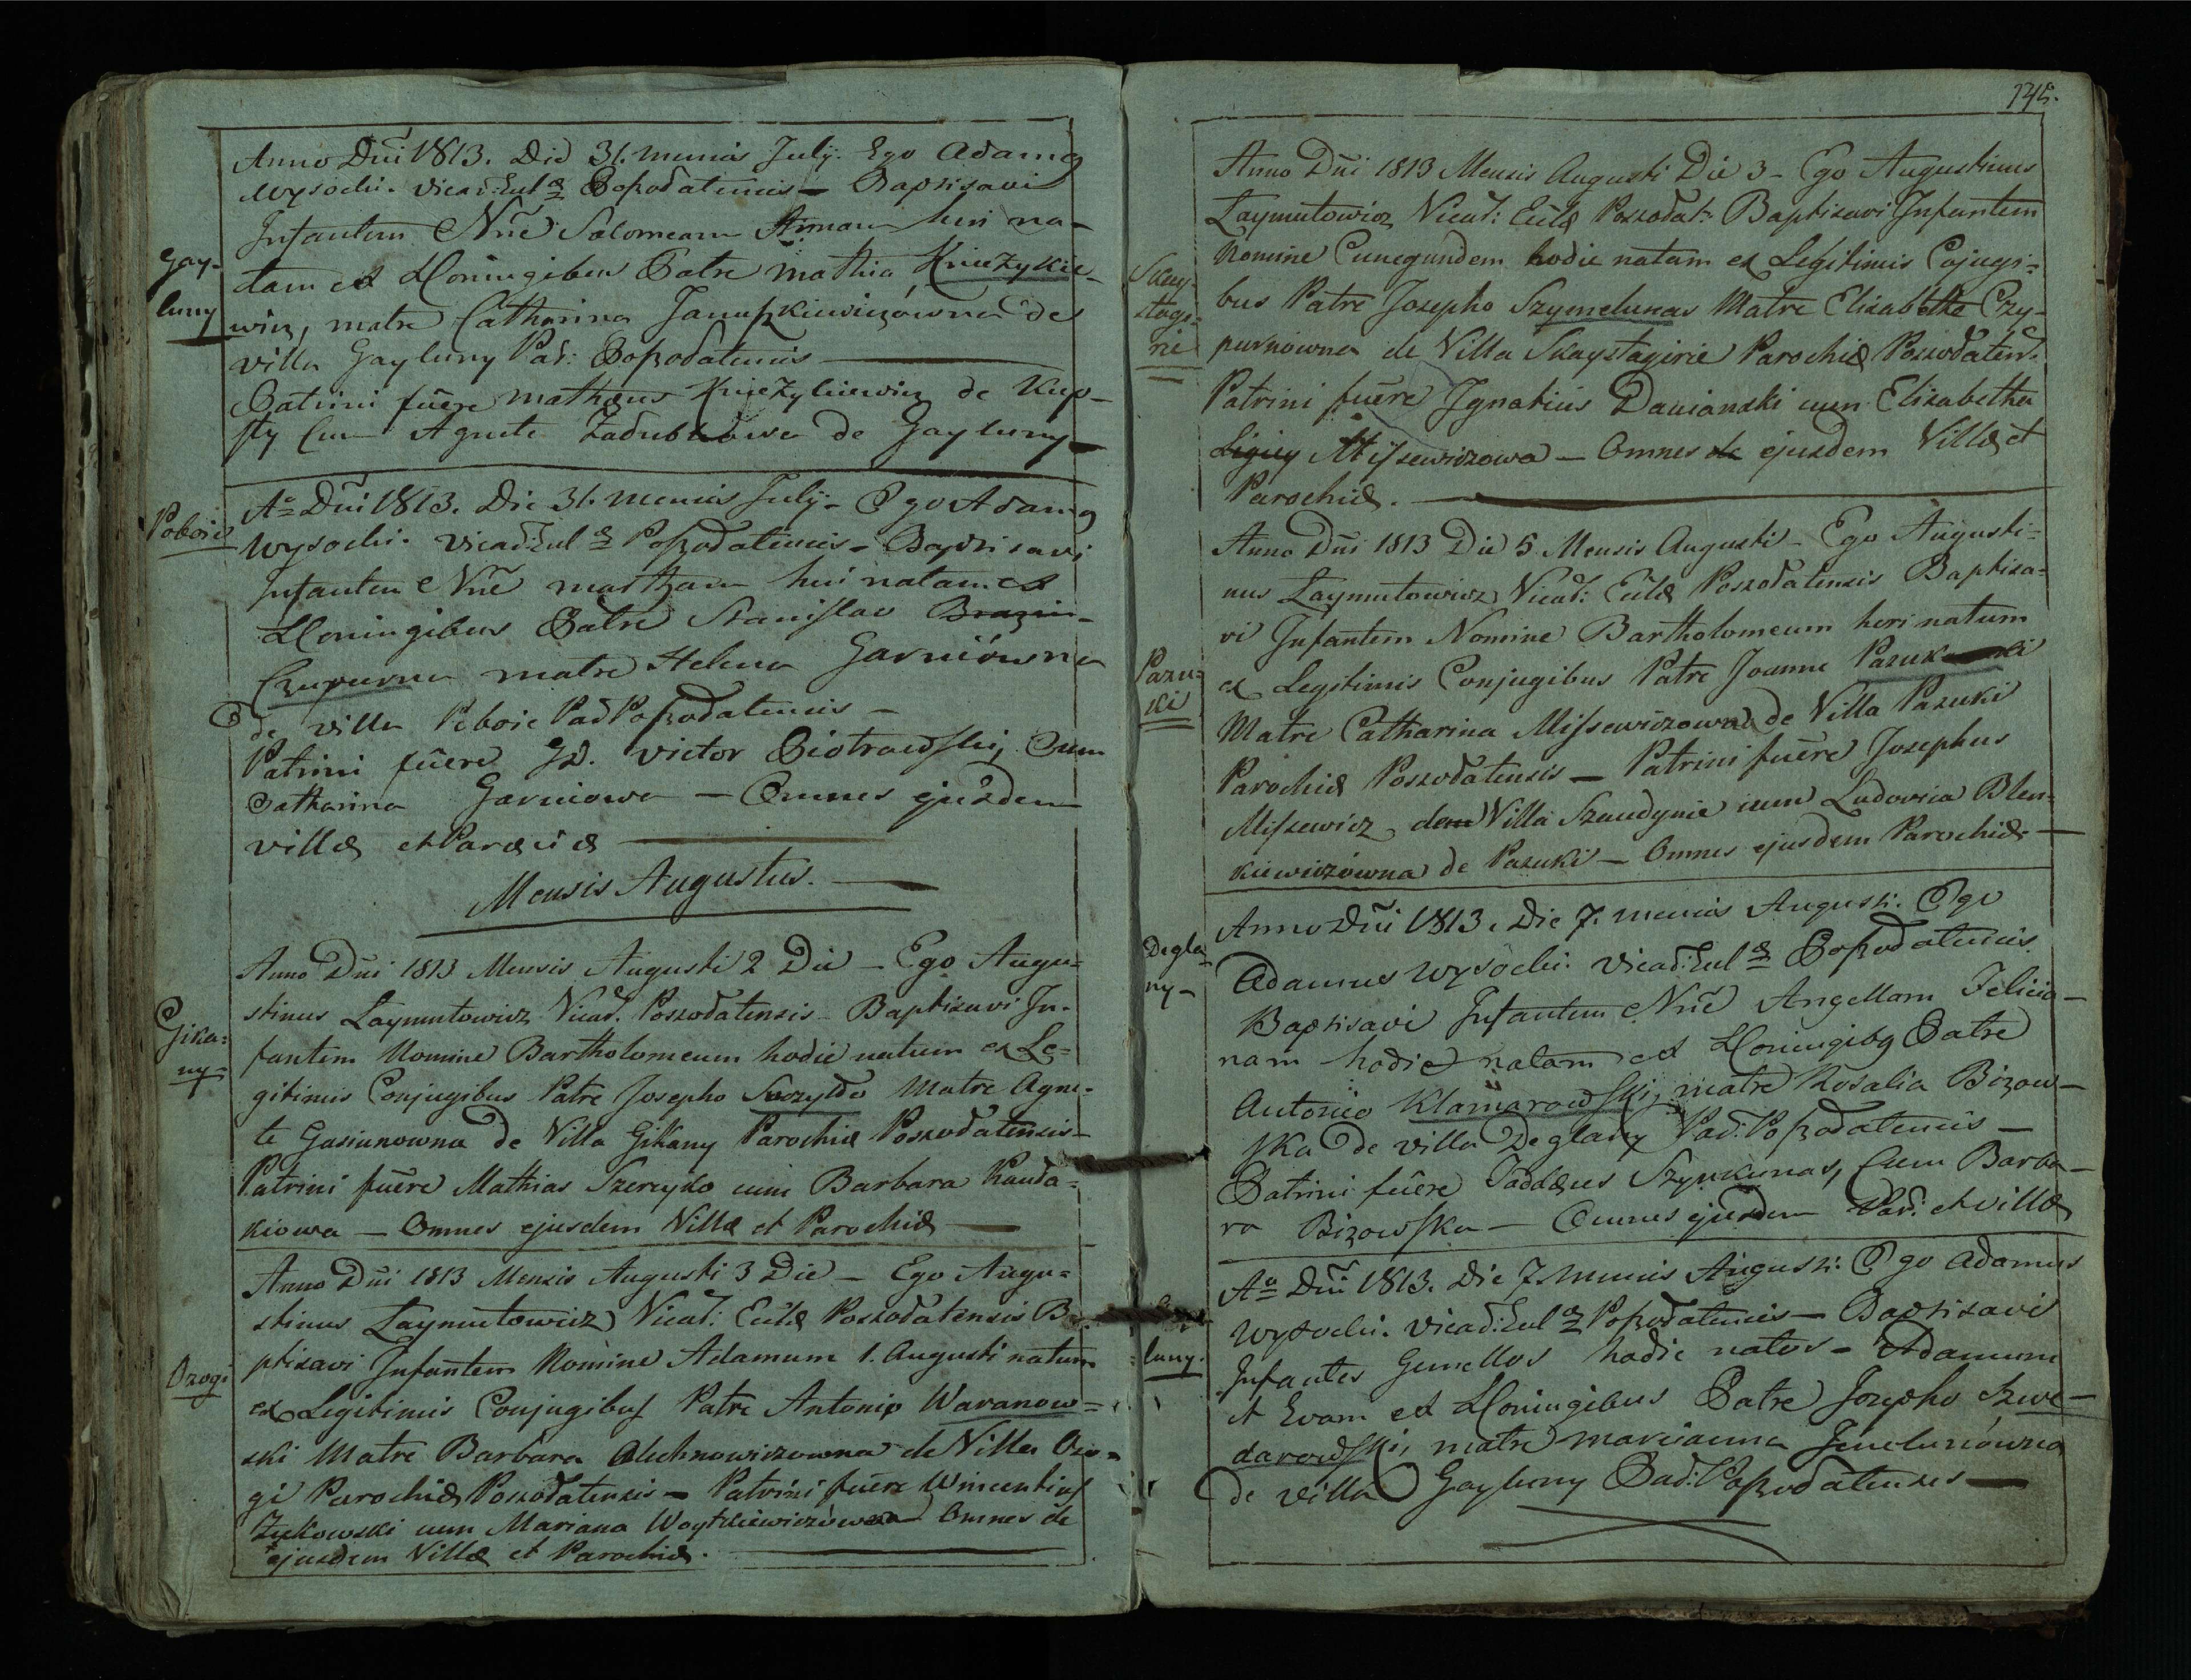 Anno Dñi 1813. Die 31. mensis Julij. Ego Adamg
Wysocki. Vicar: Eul æ Poszodatensis – Baptisavi
Infantem Nñe Salomeam Annam heri na-
Gay-
luny
tam ex LConiugibus Patre Mathia Kniezykie-
wicz, matre Catharina Januszkiewiczówna de
villa Gayluny Par: Poszodatensis
Patrini fuêre Mathæus Kniezykiewicz de Kup-
sty Cum Agnete Zadubidowa de Gayluny
Poboie
Aº Dñi 1813. Die 31. Mensis Julij – Ego Adamg
Wysocki. Vicar: Eul æ Poszodatensis – Baptisavi
Infantem Nñe Martham heri natam ex
LConiugibus Patre Stanislao
Czupurna matre Helena Garniówna
de villa Poboie Par Poszodatensis –
Patrini fuêre GD. Victor Piotrowski, Cum
Catharina Garniowa – Omnes ejusdem
villæ et Paræciæ
Mensis Augustus.
Gika=
ny=
Anno Dñi 1813 Mensis Augusti 2 Die – Ego Augu=
stinus Laymutowicz Vicar. Poszodatensis – Baptisavi In-
fantem Nomine Bartholomeum hodie natum ex Le=
gitimis Conjugibus Patre Josepho Soczyldo Matre Agne-
te Gasiunowna de Villa Gikany Parochiæ Poszodatensis –
Patrini fuêre Mathias Szereyko cum Barbara Kauda=
kiowa – Omnes ejusdem Villæ et Parochiæ
Ozogi
Anno Dñi 1813 Mensis Augusti 3 Die – Ego Augu=
stinus Laymutowicz Vicar: Eccłæ Poszodatensis Ba-
ptisavi Infantem Nomine Adamum 1. Augusti natum
ex Legitimis Conjugibus Patre Antonio Waranow=
ski Matre Barbara Aluchnowiczowna de Villa Ozo=
gi Parochiæ Poszodatensis – Patrini fuêre Wincentius
Zukowski cum Mariana Woytkiewiczówna Omnes de
ejusdem Villæ et Parochiæ.
145.
Skay-
stogi-
rie
Anno Dñi 1813 Mensis Augusti Die 3 – Ego Augustinus
Laymutowicz Vicar: Eccłæ Poszodat: Baptisavi Infantem
Nomine Cunegundem hodie natam ex Legitimis Cojugi=
bus Patre Josepho Szymelunas Matre Elisabetha Czy-
purnowna de Villa Skaystagirie Parochiæ Poszodaten.
Patrini fuêre Ignatius Dauianski cum Elizabetha
Missewiczowa – Omnes de ejusdem Villæ et
Parochiæ.
Pazu-
ki
Anno Dñi 1813 Die 5 Mensis Augusti – Ego Augusti=
nus Laymutowicz Vicar: Eccłæ Poszodatensis Baptisa=
vi Infantem Nomine Bartholomeum heri natum
ex Legitimis Conjugibus Patre Joanne
Matre Catharina Missewiczowna de Villa Pazuki
Parochiæ Poszodatensis – Patrini fuêre Josephus
Missewicz de Villa Szaudynie cum Ludovica Blen=
kiewiczówna de Pazuki – Omnes ejusdem Parochiæ –
Degla-
ny –
Anno Dñi 1813. Die 7. mensis August: Ego
Adamus Wysocki. Vicar: Eul æ Poszodatensis
Baptisavi Infantem Nñe Angellam Felicia-
nam hodie natam ex LConiugibg Patre
Antonio Klamarowski, matre Rosalia Bizow-
ska de villa Deglany Par: Poszodatensis –
Patrini fuêre Taddæus Szyukunas, Cum Barba-
ra Bizowska – Omnes ejusdem Par: et villæ
luny.
Aº Dñi 1813. Die 7. Mensis August: Ego Adamus
Wysocki. Vicar: Eul æ Poszodatensis – Baptisavi
Infantes Gemellos hodie natos – Adamum
et Evam ex LConiugibus Patre Josepho Szwe-
darowski, matre Marianna Jmelunówna
de villa Gayluny Par: Poszodatensis –